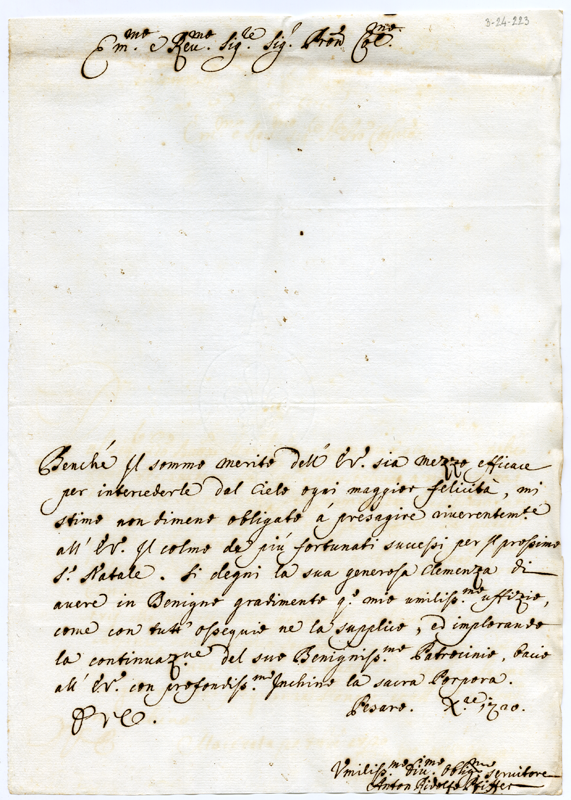 3-24-223
Em.mo e Reu.mo Sig.re Sig.r Pron Col.mo
Benché Il sommo merito dell' Ev.a sia mezzo efficace
per intercederle dal Cielo ogni maggior felicità, mi
stimo non dimeno obligato á presagire riverentem.te
all' Ev.a Il colmo de più fortunati successi per Il prossimo
S.o Natale. Si degni la sua generosa Clemenza di
auere in Benigno gradimento q.o mio umiliss.mo uffizio,
come con tutt' ossequio ne la supplico, ed implorando
la continuaz.ne del suo Benigniss.mo Patrocinio, bacio
all' Ev.a con profondiss.mo Inchino la sacra Porpora.
Pesaro. X.re 1720.
Umiliss.mo Diu.mo Oblig.mo Seruitore
Anton Ridolfo